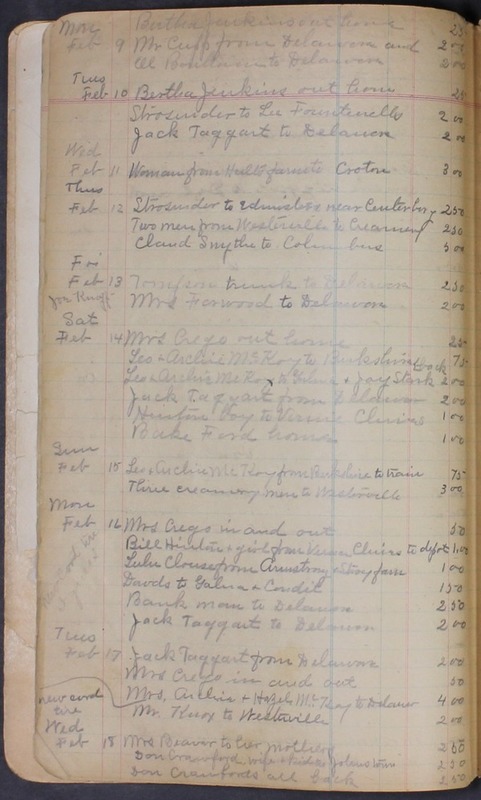 Mon Bertha Jenkins out home 25
Feb 9 Mr Cupp from Delawore and 2 50
to Delawore 2 00
Tues
Feb 10 Bertha Jenkins out home 25
Strosnider to Lee Fountenelle 2 00
Jack Taggart to Delawore 2 00
Wed
Feb 11 Woman from Hults farm to Croton 3 00
Thus
Feb 12 Strosnider to Edmister near Centerburg 2 50
Two men from Westerville to Creamery 2 50
Claud Smythe to Columbus 5 00
Fri
Feb 13 Tompson trunk to Delawore 2 50
Joe Knoff Mrs Forwood to Delawore 2 00
Sat
Feb 14 Mrs Crego out home 25
Leo & Archie McKoy to Berkshire & back 75
Leo & Archie McKoy to Galena & Joy Stark 2 00
Jack Taggart from Delawor 2 00
Hinston boy to Vernie Clines 1 00
Bake Ford home 1 00
Sun
Feb 15 Leo & Archie McKoy from Berkshire to train 75
Three creamery men to Westerville 3 00
Mon
Feb 16 Mrs Crego in and out 50
Bill Hinston & girl from Vernon Clines to depot 1 00
Lulu Clouse from Armstrong & Stony farm 1 00
Davids to Galena & Condit 1 50
Bank man to Delawore 2 50
Jack Taggart to Delawore 2 00
Tues
Feb 17 Jack Taggart from Delawore 2 00
Mrs Crego in and out 50
Mrs. Archie & Hazel McKoy to Delawor 4 00
new cord tire Mr. Knox to Westerville 2 00
Wed
Feb 18 Mrs Beaver to her mothers 2 50
Don Crawford wife & kid to Johnstown 2 50
Don Crawfords all back 2 50